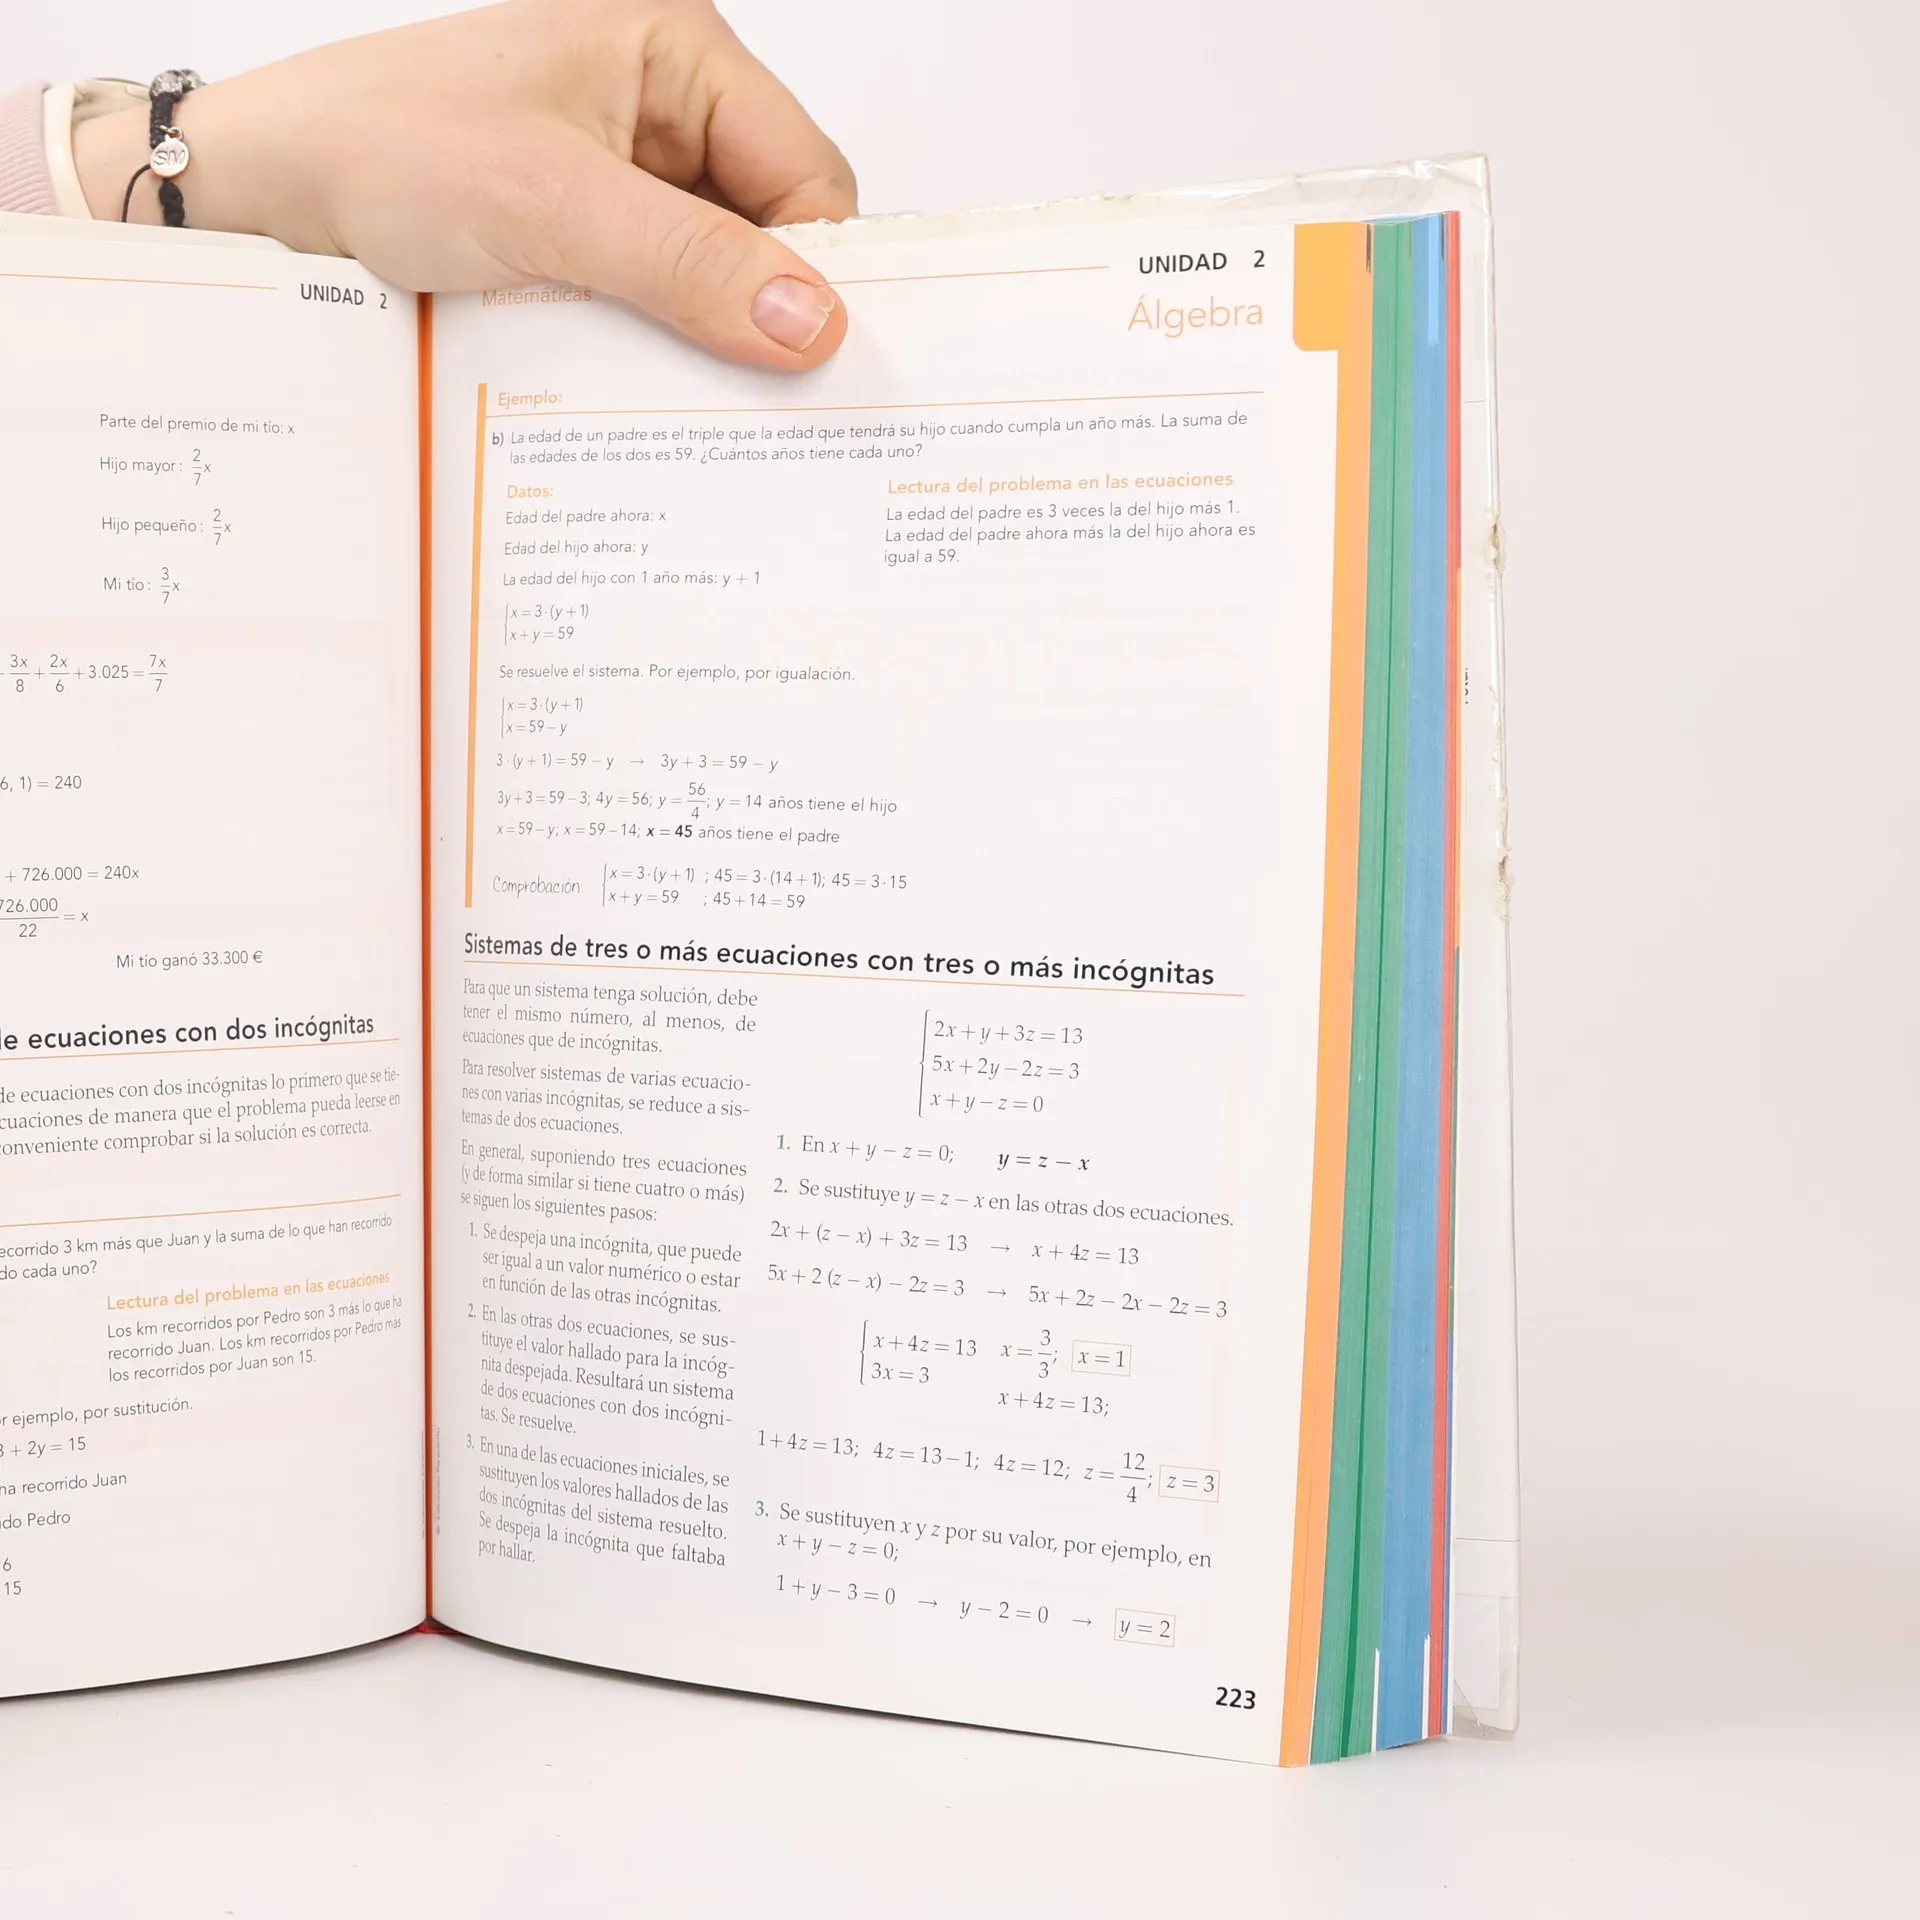 SM
UNIDAD 2
Parte del premio de mi tío: x
Hijo mayor: 2/7 x
Hijo pequeño: 2/7 x
Mi tío: 3/7 x
3x/8 + 2x/6 + 3.025 = 7x/7
6, 1) = 240
+ 726.000 = 240x
726.000/22 = x
Mi tío ganó 33.300 €
de ecuaciones con dos incógnitas
de ecuaciones con dos incógnitas lo primero que se tie-
cuaciones de manera que el problema pueda leerse en
conveniente comprobar si la solución es correcta.
ecorrido 3 km más que Juan y la suma de lo que han recorrido
do cada uno?
Lectura del problema en las ecuaciones
Los km recorridos por Pedro son 3 más lo que ha
recorrido Juan. Los km recorridos por Pedro más
los recorridos por Juan son 15.
r ejemplo, por sustitución.
3 + 2y = 15
ha recorrido Juan
ido Pedro
6
15
UNIDAD 2
Matemáticas
Álgebra
Ejemplo:
b) La edad de un padre es el triple que la edad que tendrá su hijo cuando cumpla un año más. La suma de
las edades de los dos es 59. ¿Cuántos años tiene cada uno?
Datos:
Edad del padre ahora: x
Edad del hijo ahora: y
La edad del hijo con 1 año más: y + 1
Lectura del problema en las ecuaciones
La edad del padre es 3 veces la del hijo más 1.
La edad del padre ahora más la del hijo ahora es
igual a 59.
x = 3·(y + 1)
x + y = 59
Se resuelve el sistema. Por ejemplo, por igualación.
x = 3·(y + 1)
x = 59 – y
3·(y + 1) = 59 – y → 3y + 3 = 59 – y
3y + 3 = 59 – 3; 4y = 56; y = 56/4; y = 14 años tiene el hijo
x = 59 – y; x = 59 – 14; x = 45 años tiene el padre
Comprobación x = 3·(y + 1) ; 45 = 3·(14 + 1); 45 = 3·15
x + y = 59 ; 45 + 14 = 59
Sistemas de tres o más ecuaciones con tres o más incógnitas
Para que un sistema tenga solución, debe
tener el mismo número, al menos, de
ecuaciones que de incógnitas.
Para resolver sistemas de varias ecuacio-
nes con varias incógnitas, se reduce a sis-
temas de dos ecuaciones.
En general, suponiendo tres ecuaciones
(y de forma similar si tiene cuatro o más)
se siguen los siguientes pasos:
1. Se despeja una incógnita, que puede
ser igual a un valor numérico o estar
en función de las otras incógnitas.
2. En las otras dos ecuaciones, se sus-
tituye el valor hallado para la incóg-
nita despejada. Resultará un sistema
de dos ecuaciones con dos incógni-
tas. Se resuelve.
3. En una de las ecuaciones iniciales, se
sustituyen los valores hallados de las
dos incógnitas del sistema resuelto.
Se despeja la incógnita que faltaba
por hallar.
2x + y + 3z = 13
5x + 2y – 2z = 3
x + y – z = 0
1. En x + y – z = 0; y = z – x
2. Se sustituye y = z – x en las otras dos ecuaciones.
2x + (z – x) + 3z = 13 → x + 4z = 13
5x + 2 (z – x) – 2z = 3 → 5x + 2z – 2x – 2z = 3
x + 4z = 13 x = 3/3; x = 1
3x = 3
x + 4z = 13;
1 + 4z = 13; 4z = 13 – 1; 4z = 12; z = 12/4; z = 3
3. Se sustituyen x y z por su valor, por ejemplo, en
x + y – z = 0;
1 + y – 3 = 0 → y – 2 = 0 → y = 2
223